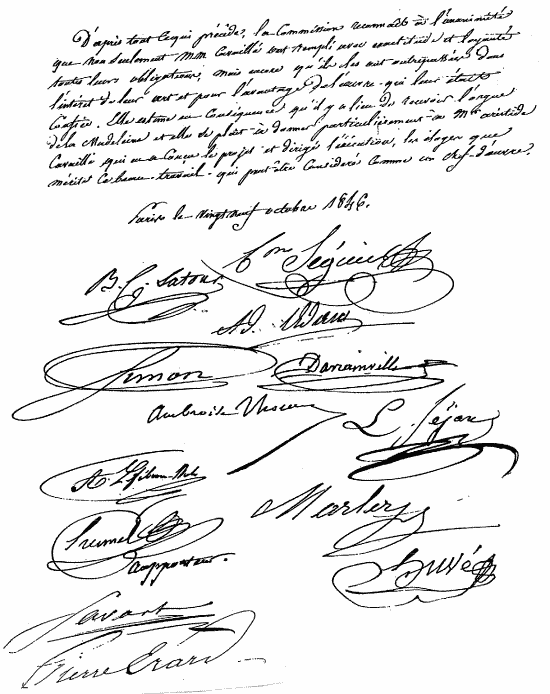 D'après tout ce qui précède, la Commission reconnait à l'unanimité
que non seulement MM. Cavaillé ont rempli avec exactitude et loyauté
toutes leurs obligations, mais encore qu'ils les ont outrepassées dans
l'intérêt de leur art et pour l'avantage de l'œuvre qui leur était
Confiée. Elle estime en Conséquence qu'il y a lieu de recevoir l'orgue
de la Madeleine et elle se plait à donner particulièrement à Mr. aristide
Cavaillé qui en a Conçu le projet et dirigé l'exécution, les éloges que
mérite Ce beau travail qui peut être Considéré Comme un chef-d'œuvre.
Paris le vingt neuf octobre 1846.
Bon Séguier
B. C. Latour
Ad. Adam
Simon
Davrainville
Ambroise Thomas
L. Séjan
A. Lefébure
Marloye
Prumier
rapporteur.
Huvé
Savart
Pierre Erard